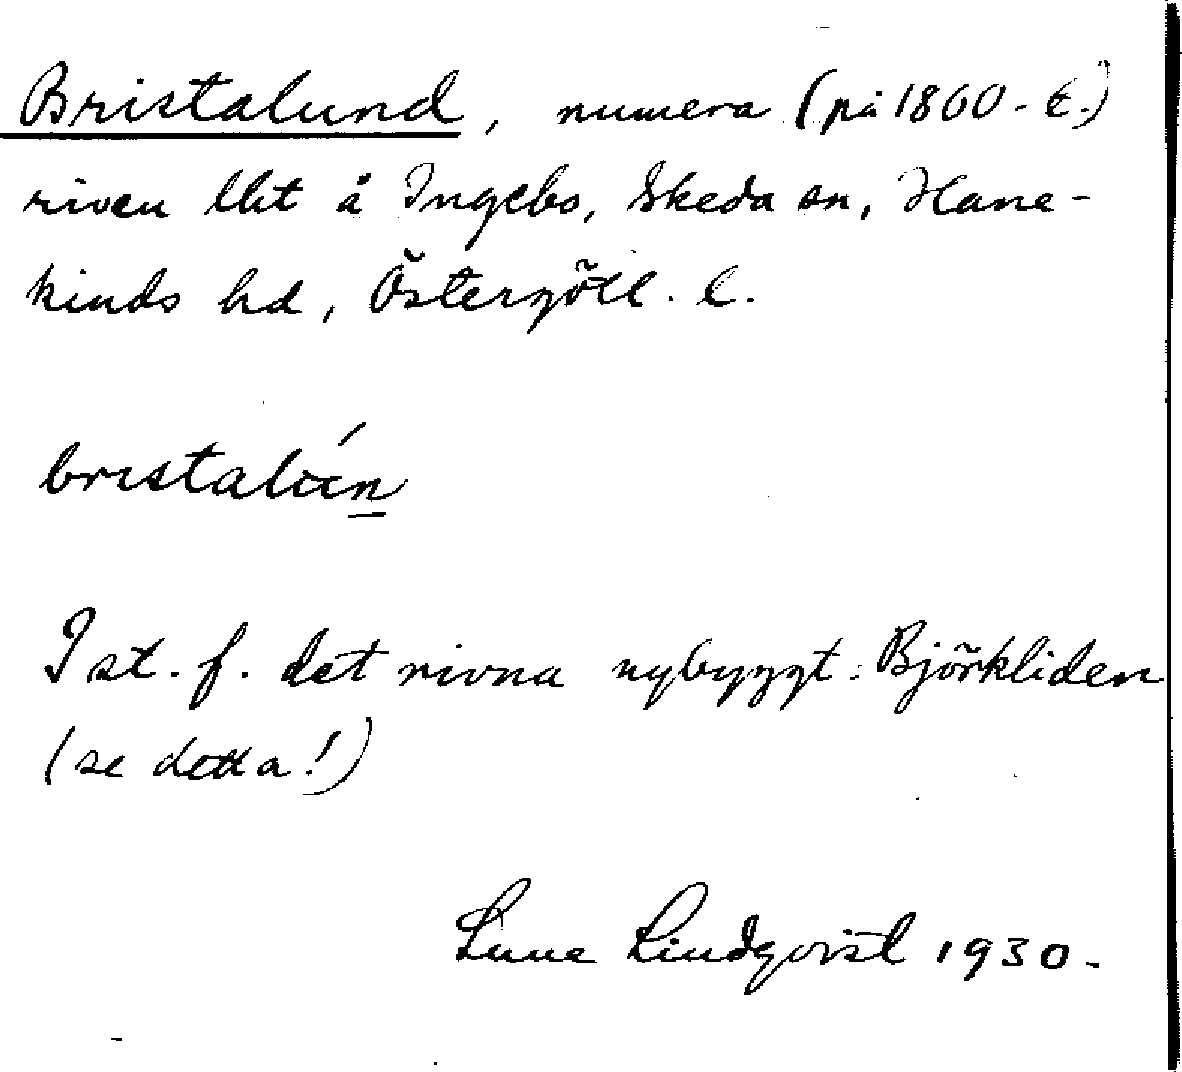 Bristalund, numera (på 1860-t.)
riven lht å Ingebo, Skeda sn, Hane-
kinds hd, Östergötl. l.
bristalún
I st. f. det rivna nybyggt: Björkliden
(se detta!)
Sune Lindqvist 1930.